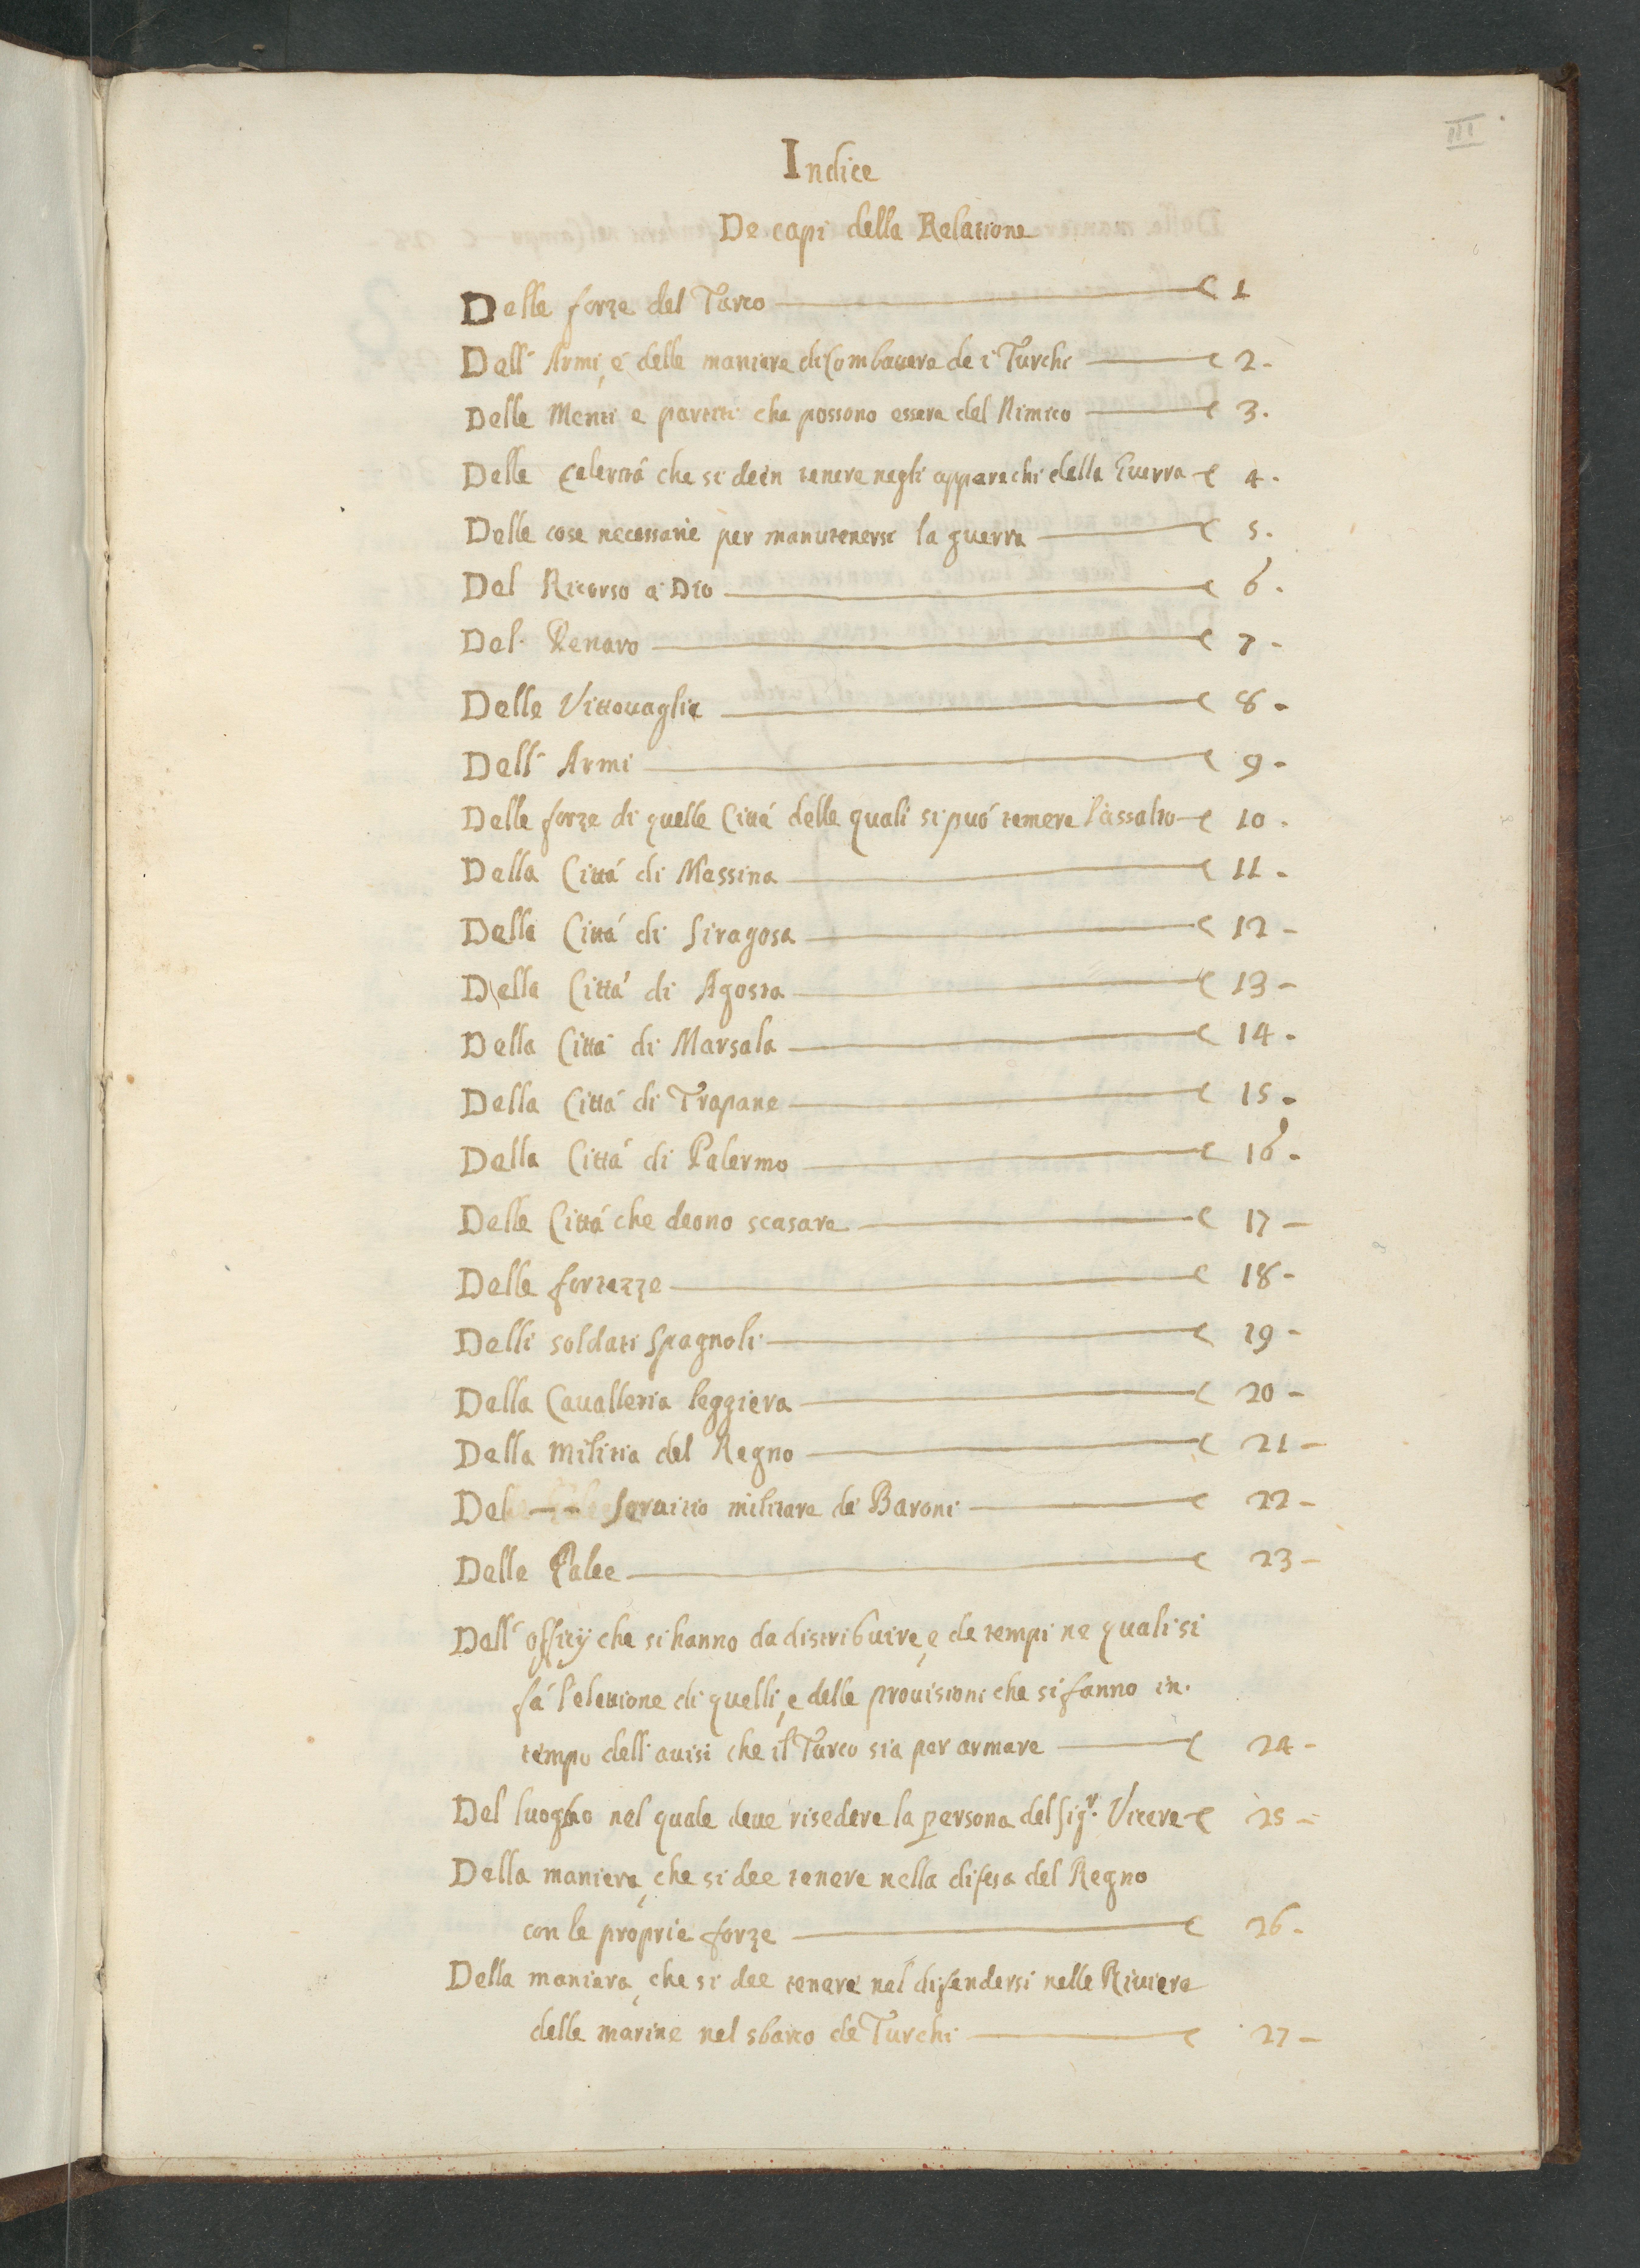 III
Indice
De capi della Relatione
Delle forze del Turco c 1
Dell' Armi, e delle maniere di Combattere de i Turchi c 2.
Delle Menti e partiti che possono essere del Nimico c 3.
Della Celerità che si deèn tenere negli apparechi della Guerra c 4.
Delle cose necessarie per manutenersi la guerra c 5.
Del Ricorso a Dio c 6.
Del Denaro c 7-
Delle Vittouaglie c 8.
Dell' Armi c 9-
Delle forze di quelle Città delle quali si può temere l'assalto c 10.
Della Città di Messina c 11.
Della Città di Siragosa c 12-
Della Città di Agosta c 13-
Della Città di Marsala c 14.
Della Città di Trapane c 15.
Della Città di Palermo c 16.
Delle Città che deono scasare c 17-
Delle fortezze c 18-
Delli soldati Spagnoli c 19-
Della Cauалleria leggiera c 20-
Della Militia del Regno c 21-
Del -- Seruitio militare de Baroni c 22-
Delle Galee c 23-
Dell' officij che si hanno da distribuire, e de tempi ne quali si
fà l'elettione di quelli, e delle prouisioni che si fanno in.
tempo delli auisi che il Turco sia per armare c 24-
Del luogho nel quale deue risedere la persona del Sigr. Vicere c 25-
Della maniera, che si dee tenere nella difesa del Regno
con le proprie forze c 26.
Della maniera, che si dee tenere nel difendersi nelle Riuiere
delle marine nel sbarco de Turchi c 27-